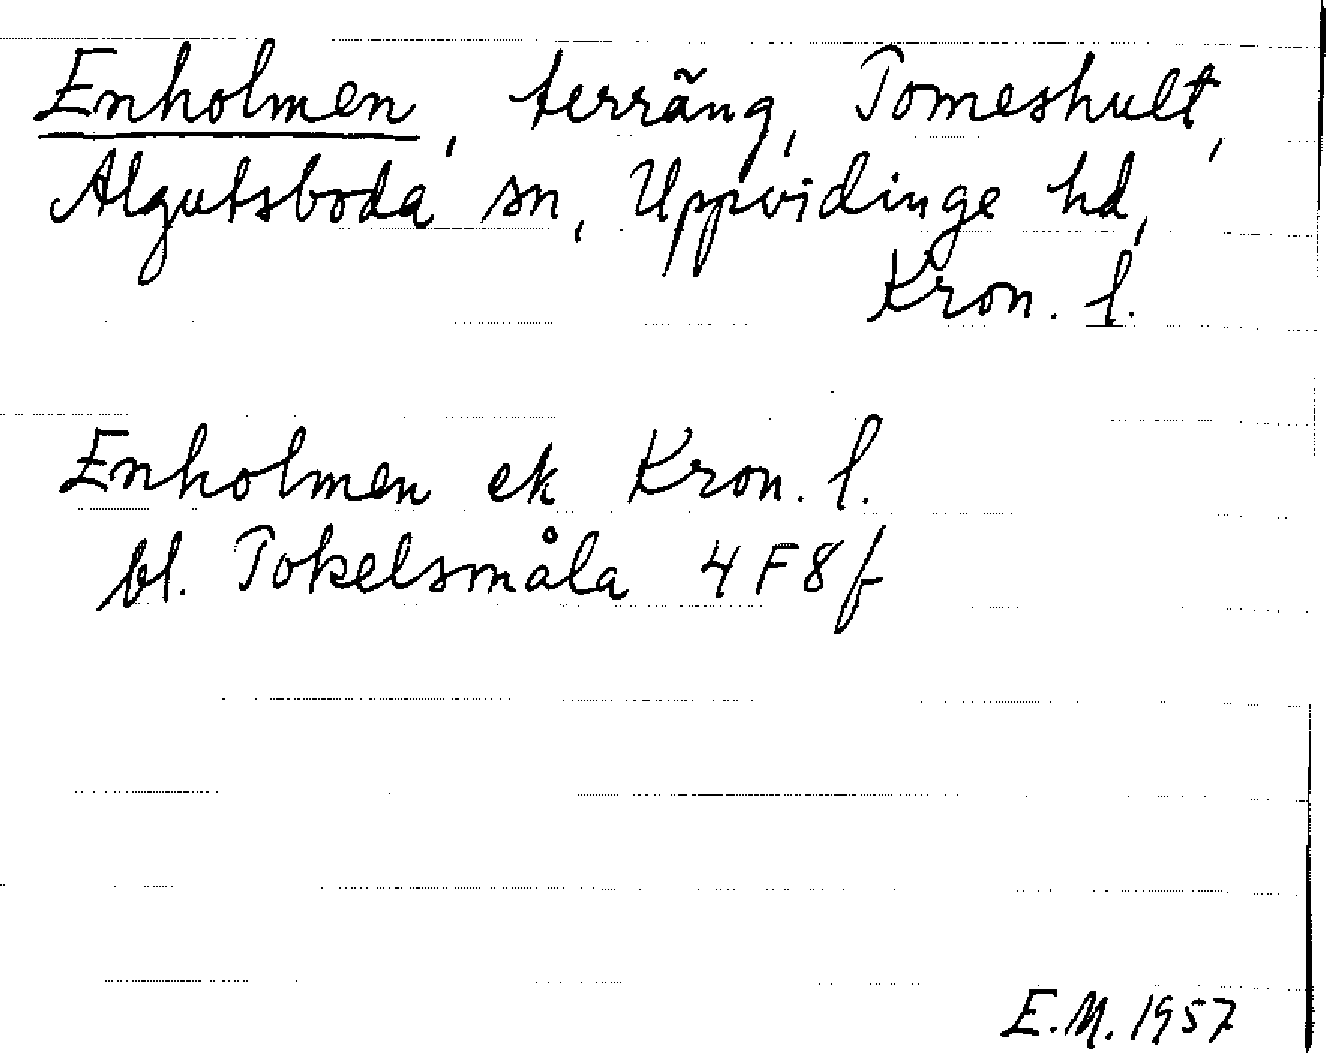 Enholmen, terräng, Tomeshult,
Algutsboda sn, Uppvidinge hd,
Kron. l.
Enholmen ek Kron. l.
bl. Tokelsmåla 4F8f
E.M. 1957